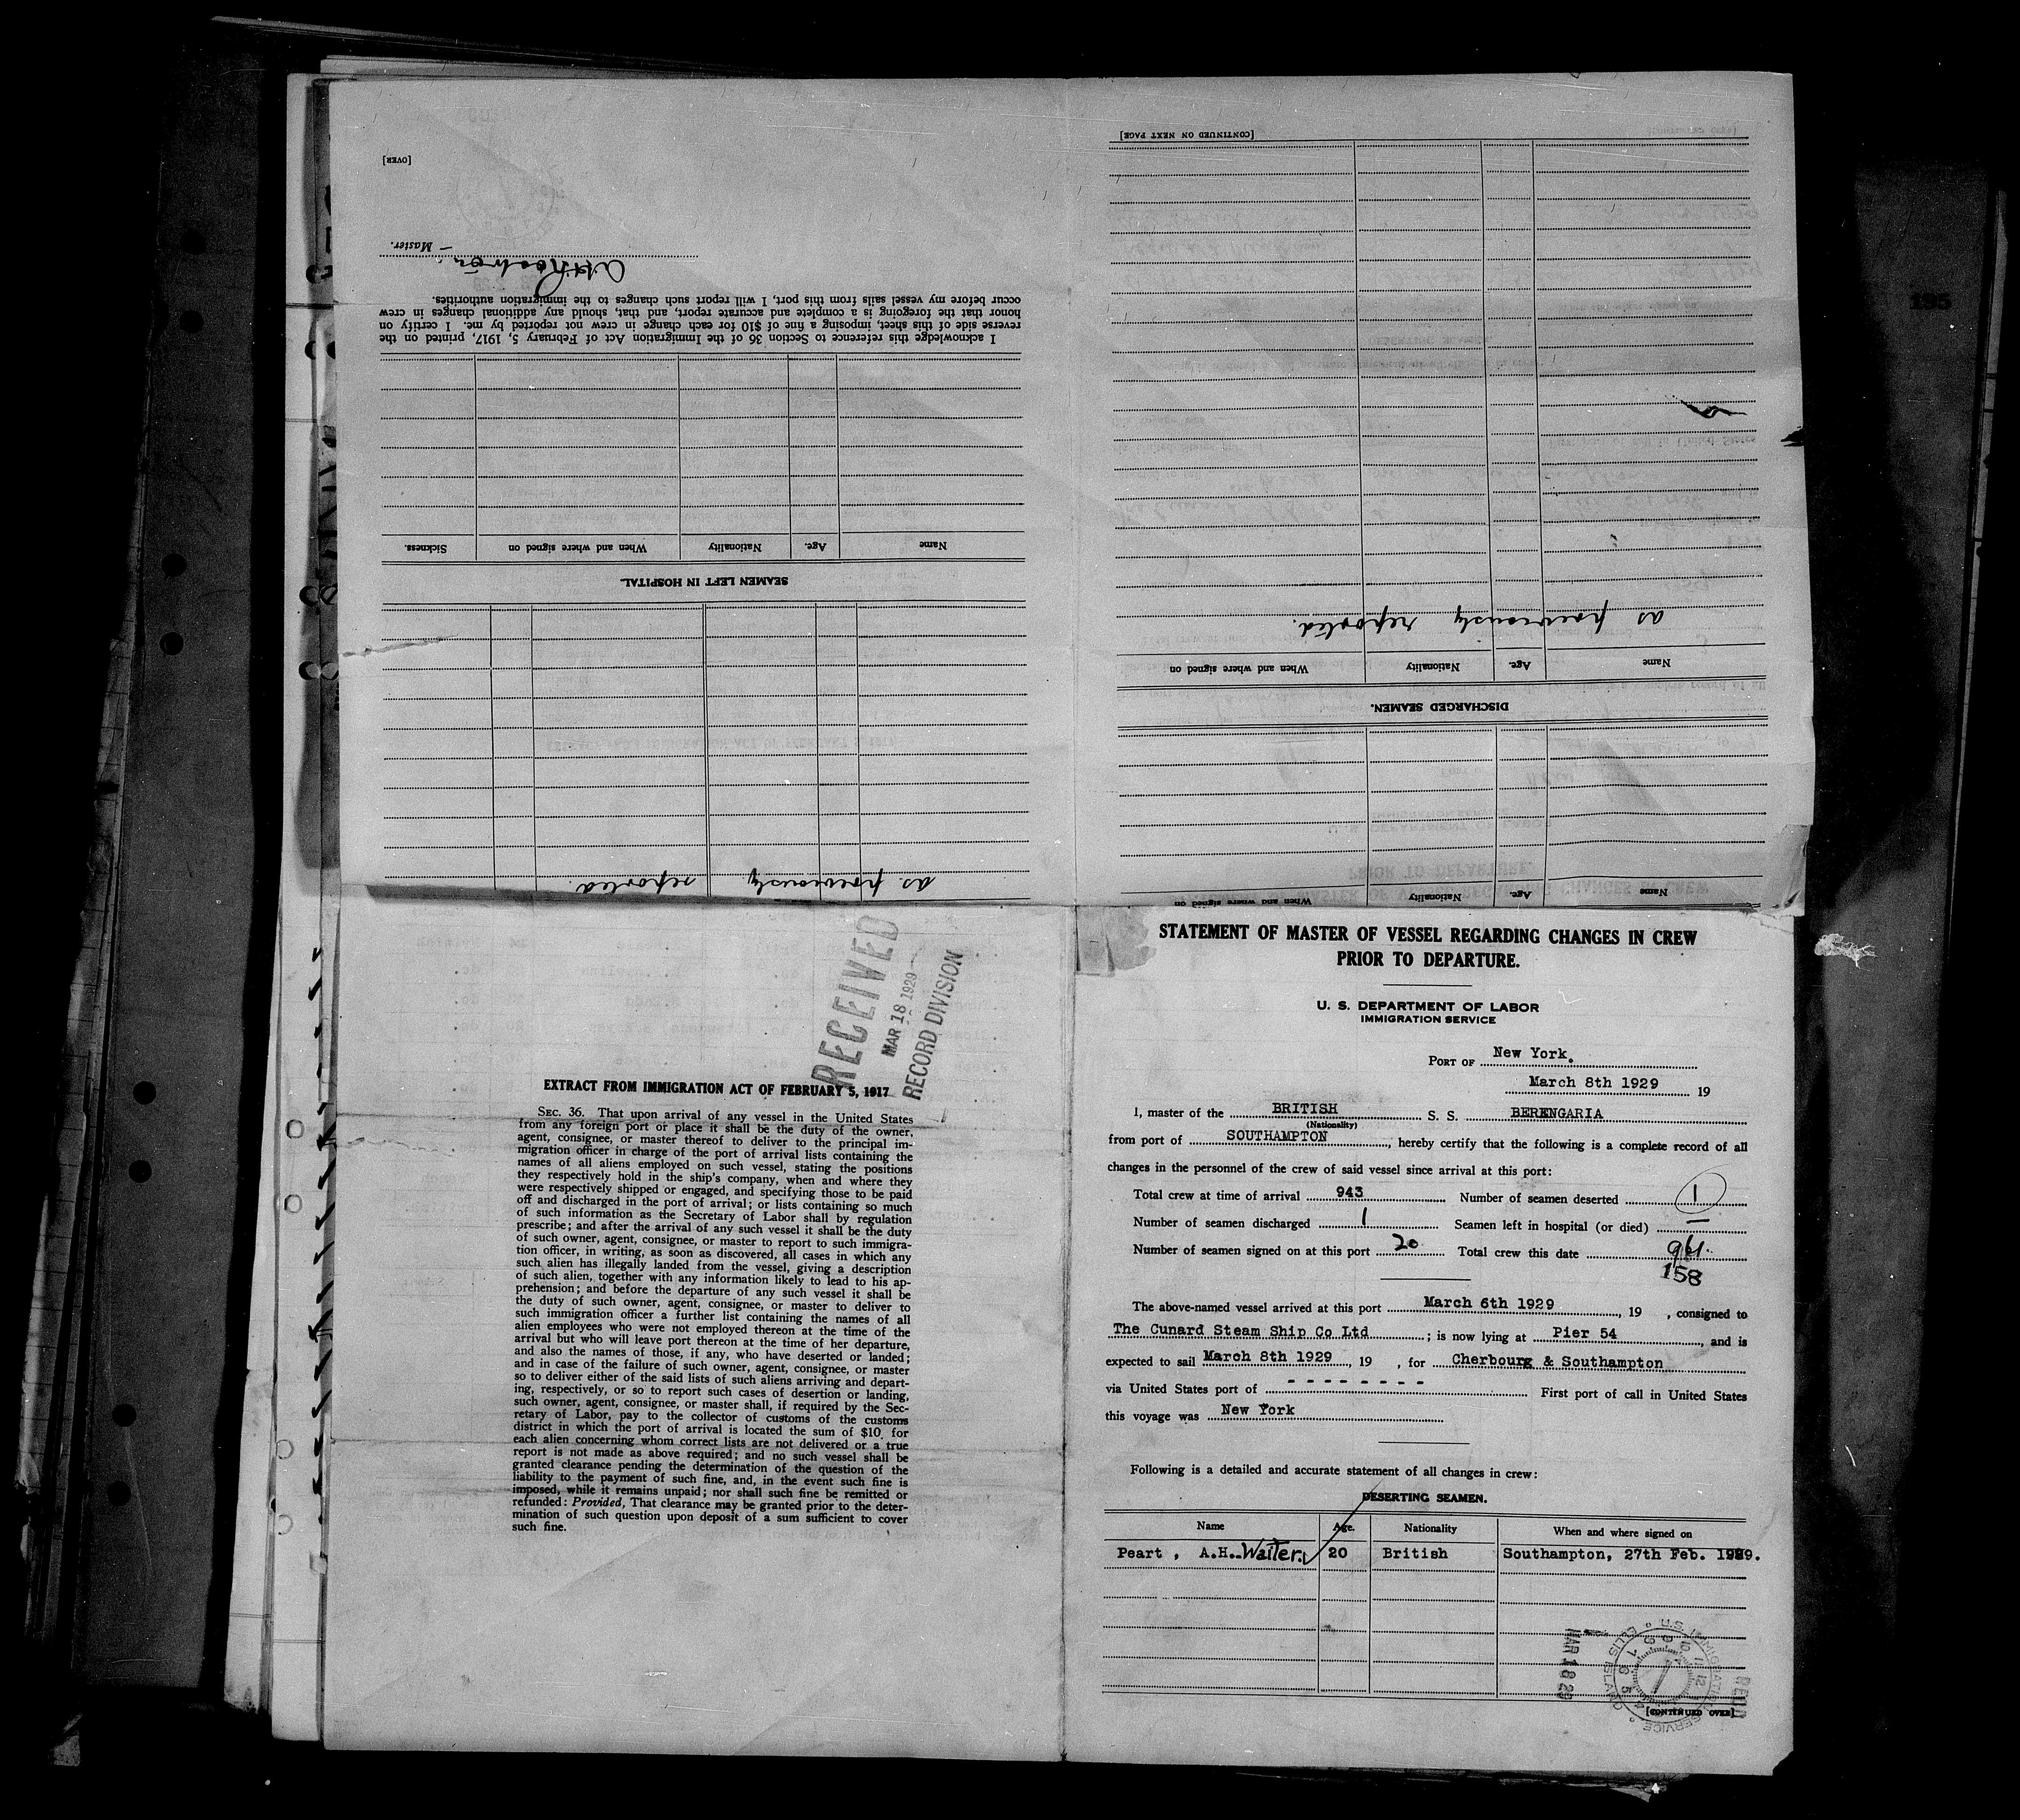 [OVER]
Master.
I acknowledge this reference to Section 36 of the Immigration Act of February 5, 1917, printed on the
reverse side of this sheet, imposing a fine of $10 for each change in crew not reported by me. I certify on
honor that the foregoing is a complete and accurate report, and that, should any additional changes in crew
occur before my vessel sails from this port, I will report such changes to the immigration authorities.
SEAMEN LEFT IN HOSPITAL.
Name Age. Nationality When and where signed on Sickness.
as previously reported.
[CONTINUED ON NEXT PAGE]
as previously reported.
Name Age. Nationality When and where signed on
DISCHARGED SEAMEN.
Name Age. Nationality When and where signed on
195
RECEIVED
MAR 18 1929
RECORD DIVISION
EXTRACT FROM IMMIGRATION ACT OF FEBRUARY 5, 1917
SEC. 36. That upon arrival of any vessel in the United States
from any foreign port or place it shall be the duty of the owner,
agent, consignee, or master thereof to deliver to the principal im-
migration officer in charge of the port of arrival lists containing the
names of all aliens employed on such vessel, stating the positions
they respectively hold in the ship's company, when and where they
were respectively shipped or engaged, and specifying those to be paid
off and discharged in the port of arrival; or lists containing so much
of such information as the Secretary of Labor shall by regulation
prescribe; and after the arrival of any such vessel it shall be the duty
of such owner, agent, consignee, or master to report to such immigra-
tion officer, in writing, as soon as discovered, all cases in which any
such alien has illegally landed from the vessel, giving a description
of such alien, together with any information likely to lead to his ap-
prehension; and before the departure of any such vessel it shall be
the duty of such owner, agent, consignee, or master to deliver to
such immigration officer a further list containing the names of all
alien employees who were not employed thereon at the time of the
arrival but who will leave port thereon at the time of her departure,
and also the names of those, if any, who have deserted or landed;
and in case of the failure of such owner, agent, consignee, or master
so to deliver either of the said lists of such aliens arriving and depart-
ing, respectively, or so to report such cases of desertion or landing,
such owner, agent, consignee, or master shall, if required by the Sec-
retary of Labor, pay to the collector of customs of the customs
district in which the port of arrival is located the sum of $10 for
each alien concerning whom correct lists are not delivered or a true
report is not made as above required; and no such vessel shall be
granted clearance pending the determination of the question of the
liability to the payment of such fine, and, in the event such fine is
imposed, while it remains unpaid; nor shall such fine be remitted or
refunded: Provided, That clearance may be granted prior to the deter-
mination of such question upon deposit of a sum sufficient to cover
such fine.
STATEMENT OF MASTER OF VESSEL REGARDING CHANGES IN CREW
PRIOR TO DEPARTURE.
U. S. DEPARTMENT OF LABOR
IMMIGRATION SERVICE
PORT OF New York.
March 8th 1929 19
I, master of the BRITISH S. S. BERENGARIA
(Nationality)
from port of SOUTHAMPTON, hereby certify that the following is a complete record of all
changes in the personnel of the crew of said vessel since arrival at this port:
Total crew at time of arrival 943 Number of seamen deserted 1
Number of seamen discharged 1 Seamen left in hospital (or died) —
Number of seamen signed on at this port 20 Total crew this date 961.
158
The above-named vessel arrived at this port March 6th 1929, 19 , consigned to
The Cunard Steam Ship Co Ltd ; is now lying at Pier 54, and is
expected to sail March 8th 1929, 19 , for Cherbourg & Southampton
via United States port of - - - - - - - - First port of call in United States
this voyage was New York
Following is a detailed and accurate statement of all changes in crew:
DESERTING SEAMEN.
Name Age. Nationality When and where signed on
Peart , A.H. Waiter. 20 British Southampton, 27th Feb. 1929.
MAR 18 29
U.S. IMMIGRATION SERVICE
ELLIS ISLAND
[CONTINUED OVER]